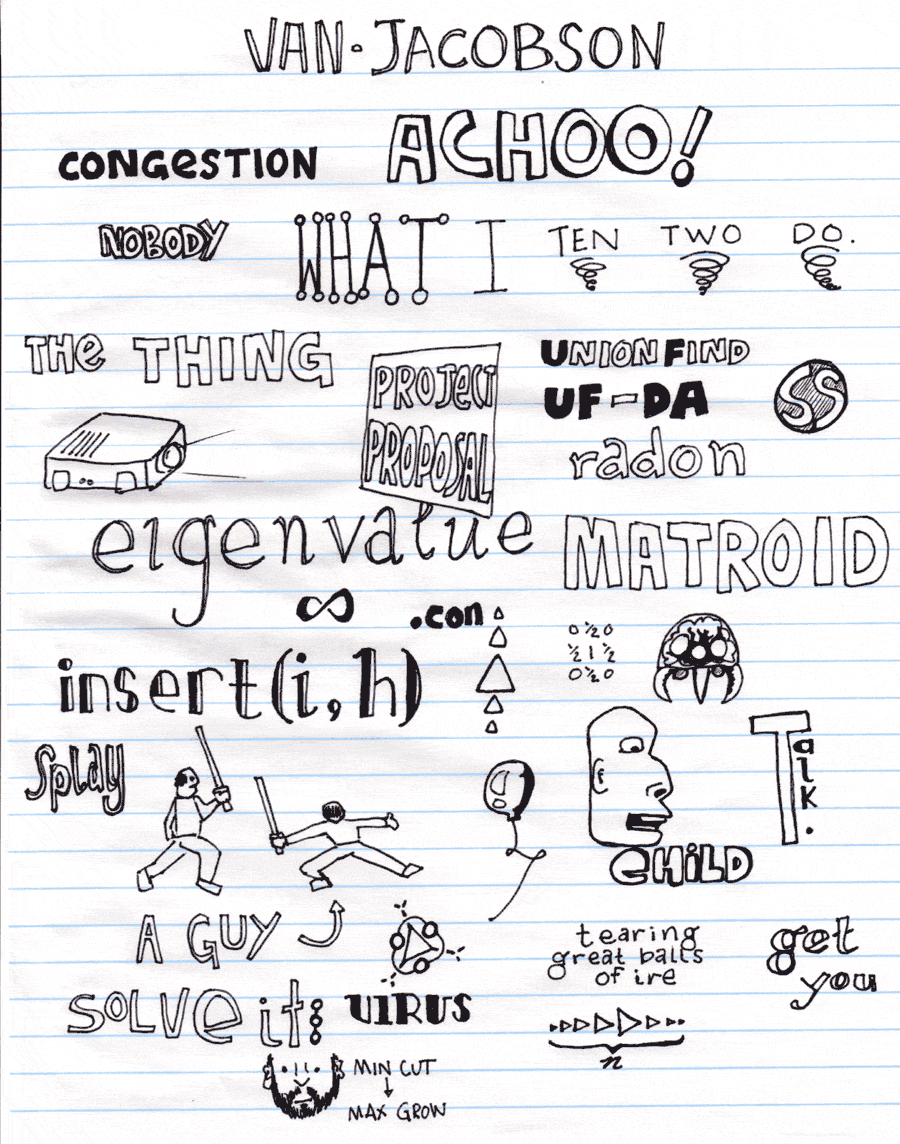 VAN·JACOBSON
ACHOO!
CONGESTION
NOBODY WHAT I TEN TWO DO.
THE THING
PROJECT
PROPOSAL
UNION FIND
UF-DA
SS
radon
eigenvalue
MATROID
∞ .con
0 ½ 0
½ 1 ½
0 ½ 0
insert(i,h)
Splay
Talk.
CHILD
A GUY
tearing
great balls
of ire
get
you
SOLVE it:
VIRUS
n
MIN CUT
MAX GROW